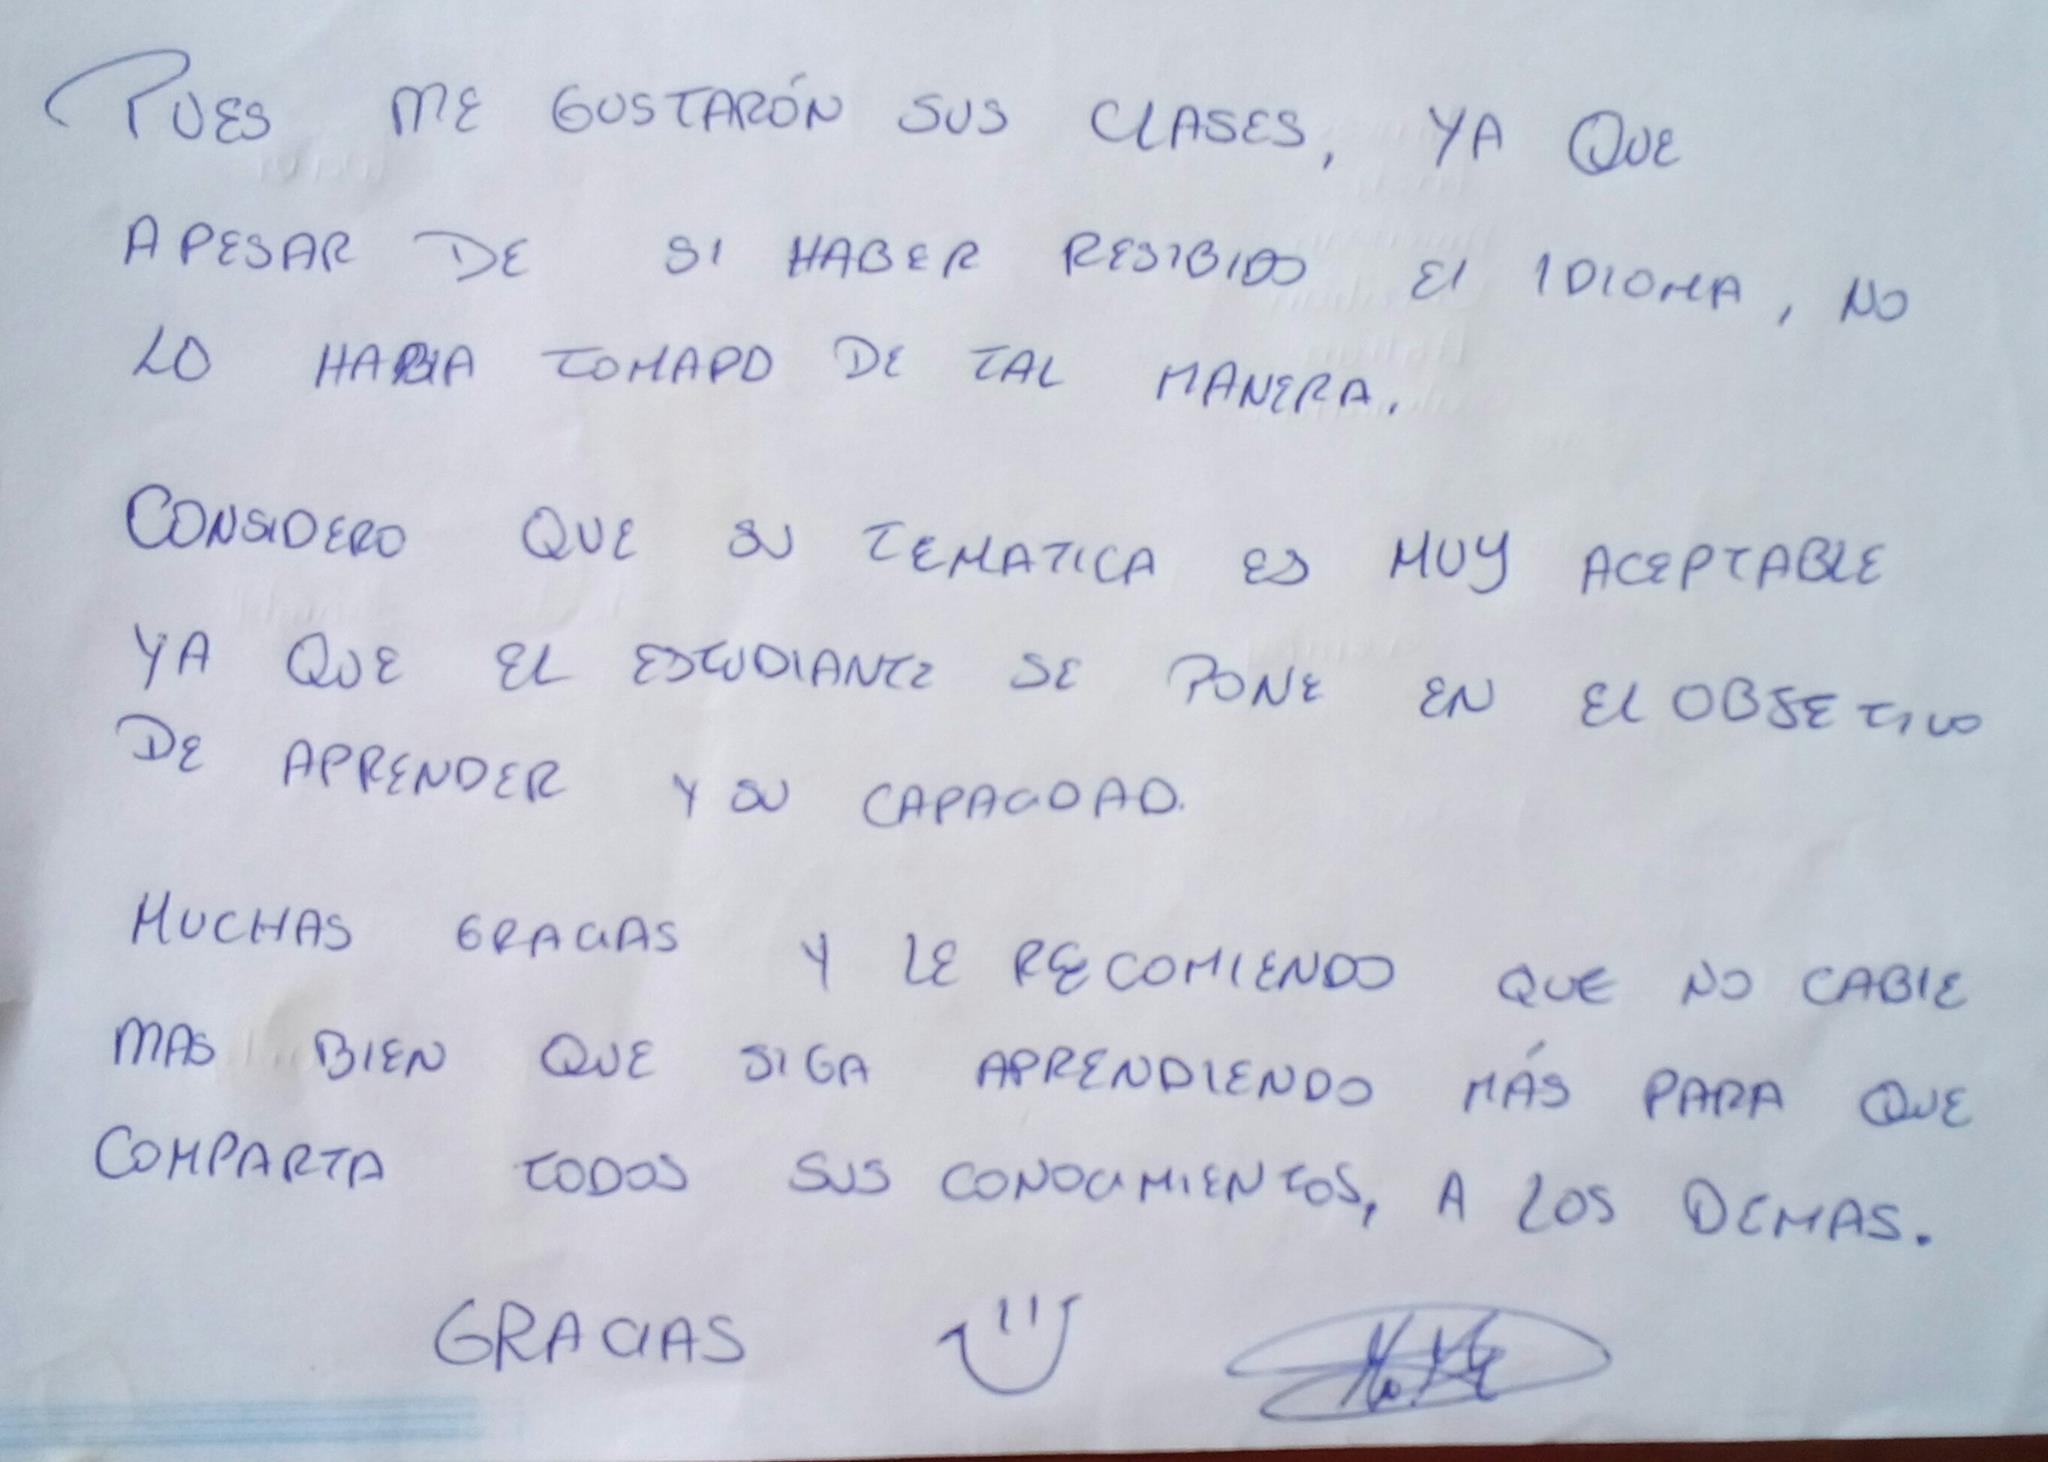 PUES ME GUSTARÓN SUS CLASES, YA QUE
APESAR DE SI HABER RESIBIDO EL IDIOMA, NO
LO HABIA TOMADO DE TAL MANERA.
CONSIDERO QUE SU TEMATICA ES MUY ACEPTABLE
YA QUE EL ESTUDIANTE SE PONE EN EL OBJETIVO
DE APRENDER Y SU CAPACIDAD.
MUCHAS GRACIAS Y LE RECOMIENDO QUE NO CABIE
MAS BIEN QUE SIGA APRENDIENDO MÁS PARA QUE
COMPARTA TODOS SUS CONOCIMIENTOS, A LOS DEMAS.
GRACIAS